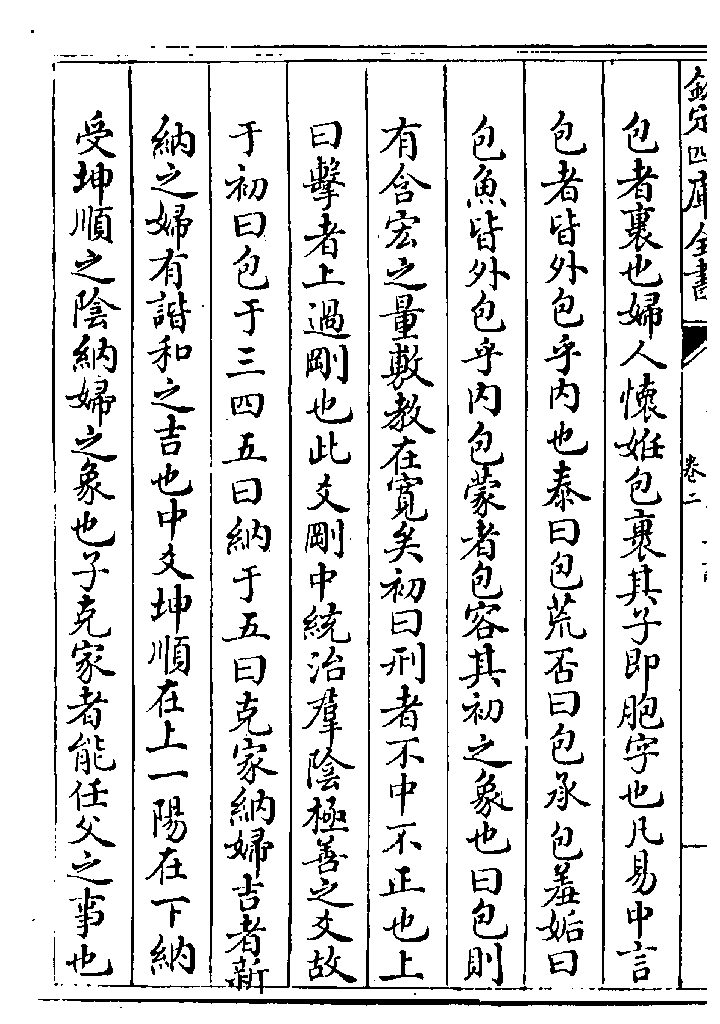 欽定四庫全書
卷二
包者裹也婦人懷姙包裹其子即胞字也凡易中言
包者皆外包乎内也泰曰包荒否曰包承包羞姤曰
包魚皆外包乎内包蒙者包容其初之象也曰包則
有含宏之量敷教在寛矣初曰刑者不中不正也上
曰擊者上過剛也此爻剛中統治羣陰極善之爻故
于初曰包于三四五曰納于五曰克家納婦吉者新
納之婦有諧和之吉也中爻坤順在上一陽在下納
受坤順之陰納婦之象也子克家者能任父之事也